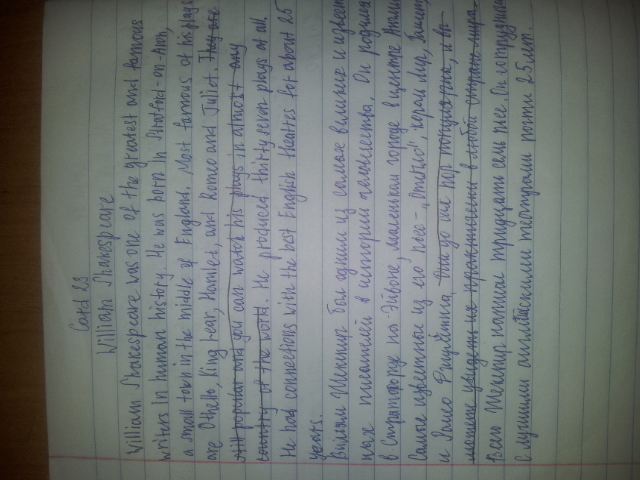 Card 23
William Shakespeare
William Shakespeare was one of the greatest and famous
writers in human history. He was born in Stratford-on-Avon,
a small town in the middle of England. Most famous of his plays
are Othello, King Lear, Hamlet, and Romeo and Juliet. They are
still popular and you can watch his plays in almost any
country of the world. He produced thirty seven plays at all.
He had connections with the best English theatres for about 25
years.
Вильям Шекспир был одним из самых великих и извест
ных писателей в истории человечества. Он родился
в Стратфорде на Эйвоне, маленьком городе в центре Англии
Самые известные из его пьес - „Отелло", король Лир, Гамлет,
и Ромео Джульетта. Они до сих пор популярны, и вы
можете увидеть их практически в любой стране мира.
Всего Шекспир написал тридцать семь пьес. Он сотрудничал
с лучшими английскими театрами почти 25 лет.